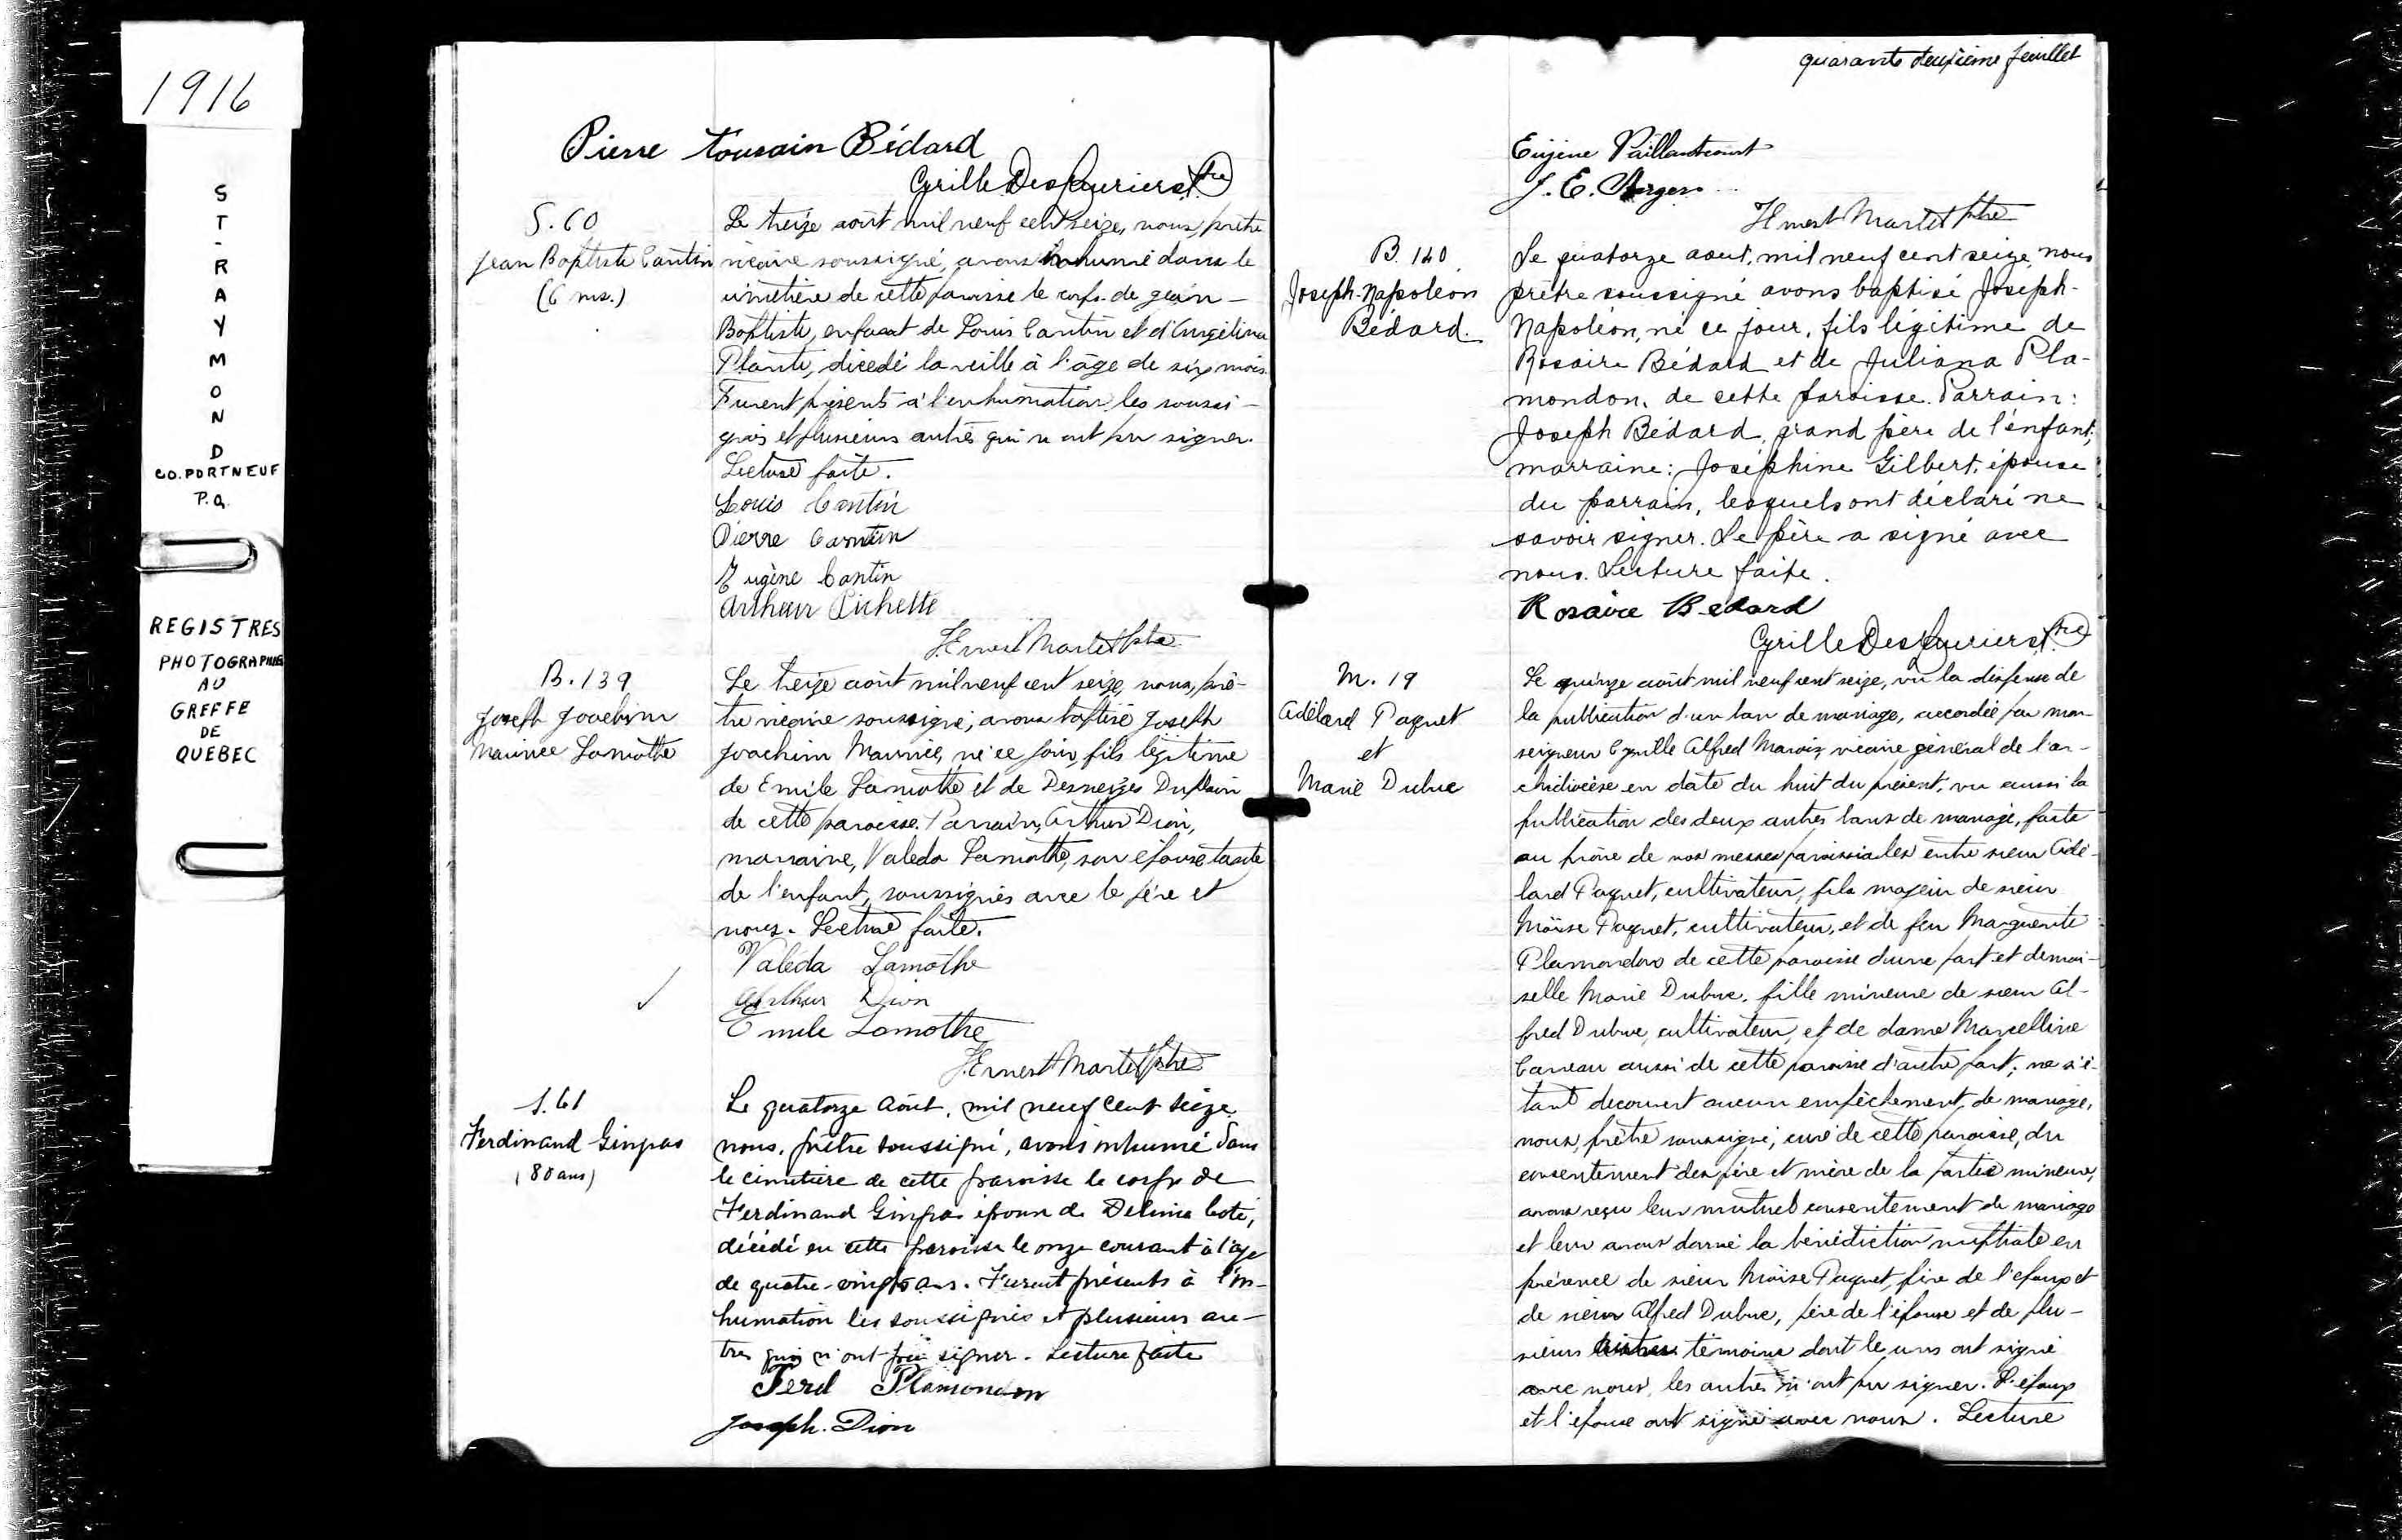 1916
ST-RAYMOND
CO. PORTNEUF
P.Q.
REGISTRES
PHOTOGRAPHIÉS
AU
GREFFE
DE
QUEBEC
Pierre Tousain Bédard
Cyrille Deslauriers, Ptre
S. 60
Jean Baptiste Cantin
(6 ms.)
Le treize août mil neuf cent seize, nous, prêtre
vicaire soussigné, avons inhumé dans le
cimetière de cette paroisse le corps de Jean-
Baptiste, enfant de Louis Cantin et d'Angélina
Plante, décédé la veille à l'âge de six mois.
Furent présents à l'inhumation les soussi-
gnés et plusieurs autres qui n'ont pu signer.
Lecture faite.
Louis Cantin
Pierre Cantin
Eugène Cantin
Arthur Pichette
J. Ernest Martel ptre
B. 139
Joseph Joachim
Maurice Lamothe
Le treize août mil neuf cent seize, nous, prê-
tre vicaire soussigné, avons baptisé Joseph
Joachim Maurice, né ce jour, fils légitime
de Emile Lamothe et de Desneiges Duplain
de cette paroisse. Parrain, Arthur Dion,
marraine, Valeda Lamothe, son épouse tante
de l'enfant, soussignés avec le père et
nous. Lecture faite.
Valeda Lamothe
Arthur Dion
Emile Lamothe
J. Ernest Martel ptre
S. 61
Ferdinand Gingras
(80 ans)
Le quatorze août, mil neuf cent seize,
nous, prêtre soussigné, avons inhumé dans
le cimetière de cette paroisse le corps de
Ferdinand Gingras époux de Delima Coté,
décédé en cette paroisse le onze courant à l'âge
de quatre-vingts ans. Furent présents à l'in-
humation les soussignés et plusieurs au-
tres qui n'ont pu signer. Lecture faite
Ferd Plamondon
Joseph. Dion
quarante deuxième feuillet
Eugène Paillantcourt
J. E.
J. Ernest Martel ptre
B. 140
Joseph-Napoléon
Bédard.
Le quatorze aout, mil neuf cent seize, nous
prêtre soussigné avons baptisé Joseph-
Napoléon, né ce jour, fils légitime de
Rosaire Bédard et de Juliana Pla-
mondon, de cette paroisse. Parrain:
Joseph Bédard, grand père de l'enfant;
marraine: Joséphine Gilbert, épouse
du parrain, lesquels ont déclaré ne
savoir signer. Le père a signé avec
nous. Lecture faite.
Rosaire Bedard
Cyrille Deslauriers, Ptre
M. 19
Adélard Paquet
et
Marie Dubuc
Le quinze août mil neuf cent seize, vu la dispense de
la publication d'un ban de mariage, accordée par mon-
seigneur Cyrille Alfred Marois, vicaire général de l'ar-
chidiocèse en date du huit du présent, vu aussi la
publication des deux autres bans de mariage, faite
au prône de nos messes paroissiales entre sieur Adé-
lard Paquet, cultivateur, fils majeur de sieur
Moïse Paquet, cultivateur, et de feu Marguerite
Plamondon de cette paroisse d'une part et demoi-
selle Marie Dubuc, fille mineure de sieur Al-
fred Dubuc, cultivateur, et de dame Marcelline
aussi de cette paroisse d'autre part; ne s'é-
tant découvert aucun empêchement de mariage,
nous, prêtre soussigné, curé de cette paroisse, du
consentement des père et mère de la partie mineure,
avons reçu leur mutuel consentement de mariage
et leur avons donné la bénédiction nuptiale en
présence de sieur Moïse Paquet, père de l'époux et
de sieur Alfred Dubuc, père de l'épouse et de plu-
sieurs autres témoins dont le uns ont signé
avec nous, les autres n'ont pu signer. L'époux
et l'épouse ont signé avec nous. Lecture